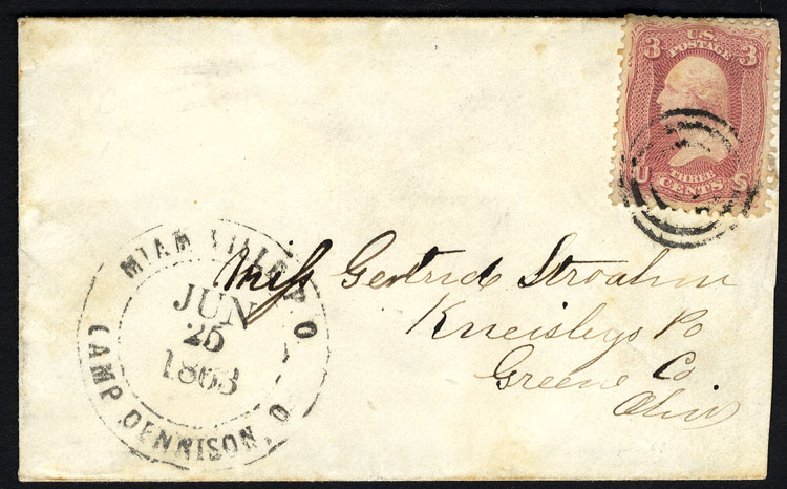 3 U.S. 3
POSTAGE
U THREE S
CENTS
MIAMIVILLE P O
JUN
25
1863
CAMP DENNISON, O
Miss Gertrude
Kneisleys Po
Greene Co
Ohio